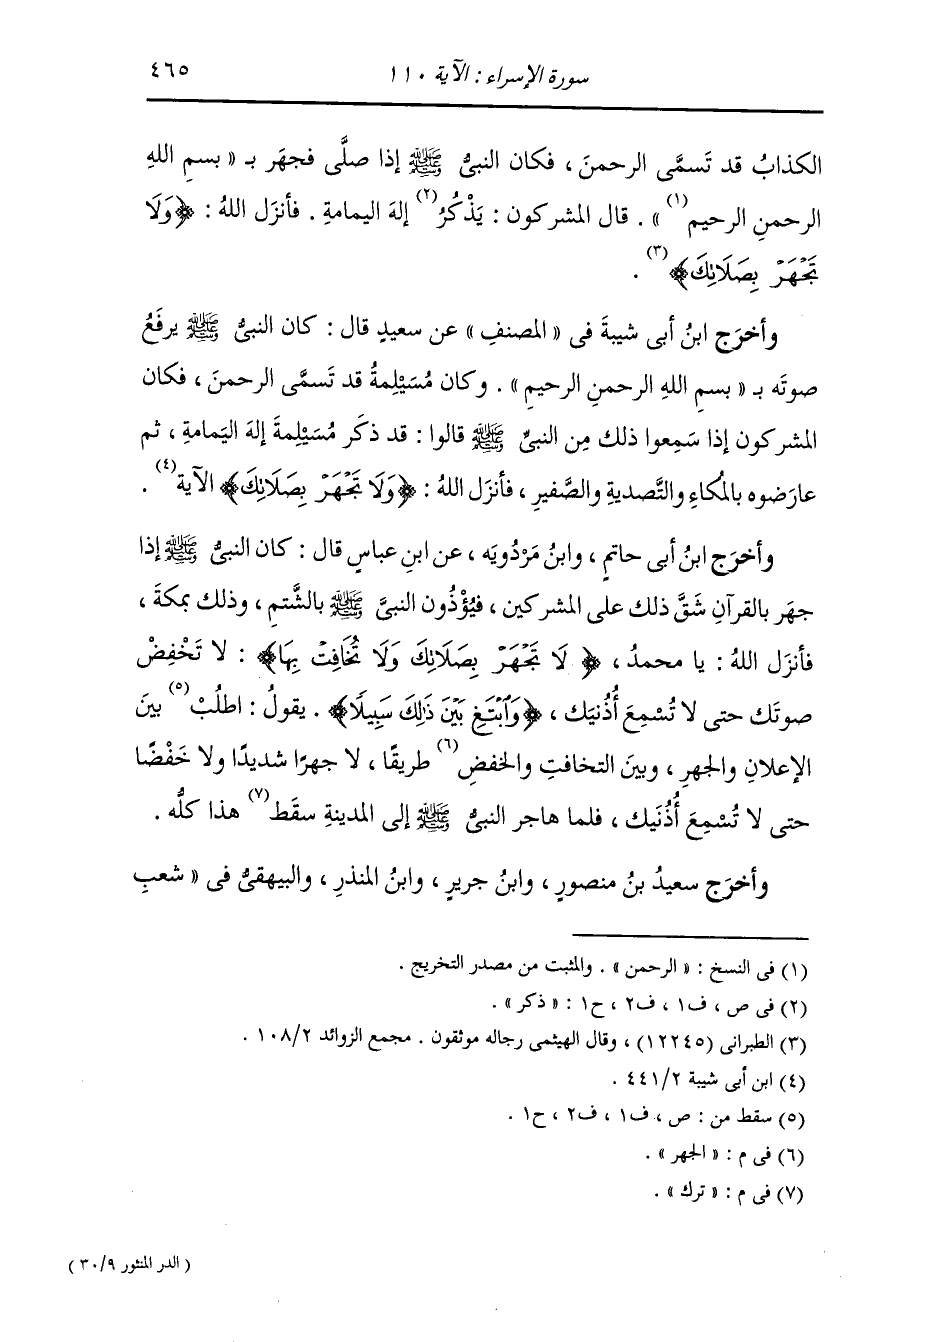 سورة الإسراء : الآية ١١٠
٤٦٥
الكذابُ قد تَسمَّى الرحمنَ ، فكان النبىُّ ﷺ إذا صلَّى فجهَر بـ « بسمِ اللهِ
الرحمنِ الرحيمِ(١) » . قال المشركون : يَذْكُرُ(٢) إلهَ اليمامةِ . فأنزَل اللهُ : ﴿وَلَا
تَجْهَرْ بِصَلَاتِكَ﴾(٣) .
وأخرَج ابنُ أبى شيبةَ فى « المصنفِ » عن سعيدٍ قال : كان النبىُّ ﷺ يرفَعُ
صوتَه بـ « بسمِ اللهِ الرحمنِ الرحيمِ » . وكان مُسَيْلِمةُ قد تَسمَّى الرحمنَ ، فكان
المشركون إذا سَمِعوا ذلك مِن النبىِّ ﷺ قالوا : قد ذكَر مُسَيْلِمةَ إلهَ اليَمامةِ ، ثم
عارَضوه بالمُكاءِ والتَّصديةِ والصَّفيرِ ، فأنزَل اللهُ : ﴿وَلَا تَجْهَرْ بِصَلَاتِكَ﴾ الآية(٤) .
وأخرَج ابنُ أبى حاتمٍ ، وابنُ مَرْدُويَه ، عن ابنِ عباسٍ قال : كان النبىُّ ﷺ إذا
جهَر بالقرآنِ شَقَّ ذلك على المشركين ، فيُؤْذُون النبىَّ ﷺ بالشَّتمِ ، وذلك بمكةَ ،
فأنزَل اللهُ : يا محمدُ ، ﴿ لَا تَجْهَرْ بِصَلَاتِكَ وَلَا تُخَافِتْ بِهَا﴾ : لا تَخْفِضْ
صوتَك حتى لا تُسْمِعَ أُذُنَيك ، ﴿وَٱبْتَغِ بَيْنَ ذَٰلِكَ سَبِيلًا﴾ . يقولُ : اطلُبْ(٥) بينَ
الإعلانِ والجهرِ ، وبينَ التخافتِ والخفضِ(٦) طريقًا ، لا جهرًا شديدًا ولا خَفْضًا
حتى لا تُسْمِعَ أُذُنَيك ، فلما هاجر النبىُّ ﷺ إلى المدينةِ سقَط(٧) هذا كلُّه .
وأخرَج سعيدُ بنُ منصورٍ ، وابنُ جريرٍ ، وابنُ المنذرِ ، والبيهقىُّ فى « شعبِ
(١) فى النسخ : « الرحمن » . والمثبت من مصدر التخريج .
(٢) فى ص ، ف١ ، ف٢ ، ح١ : « ذكر » .
(٣) الطبرانى (١٢٢٤٥) ، وقال الهيثمى رجاله موثقون . مجمع الزوائد ١٠٨/٢ .
(٤) ابن أبى شيبة ٤٤١/٢ .
(٥) سقط من : ص ، ف١ ، ف٢ ، ح١ .
(٦) فى م : « الجهر » .
(٧) فى م : « ترك » .
( الدر المنثور ٣٠/٩ )